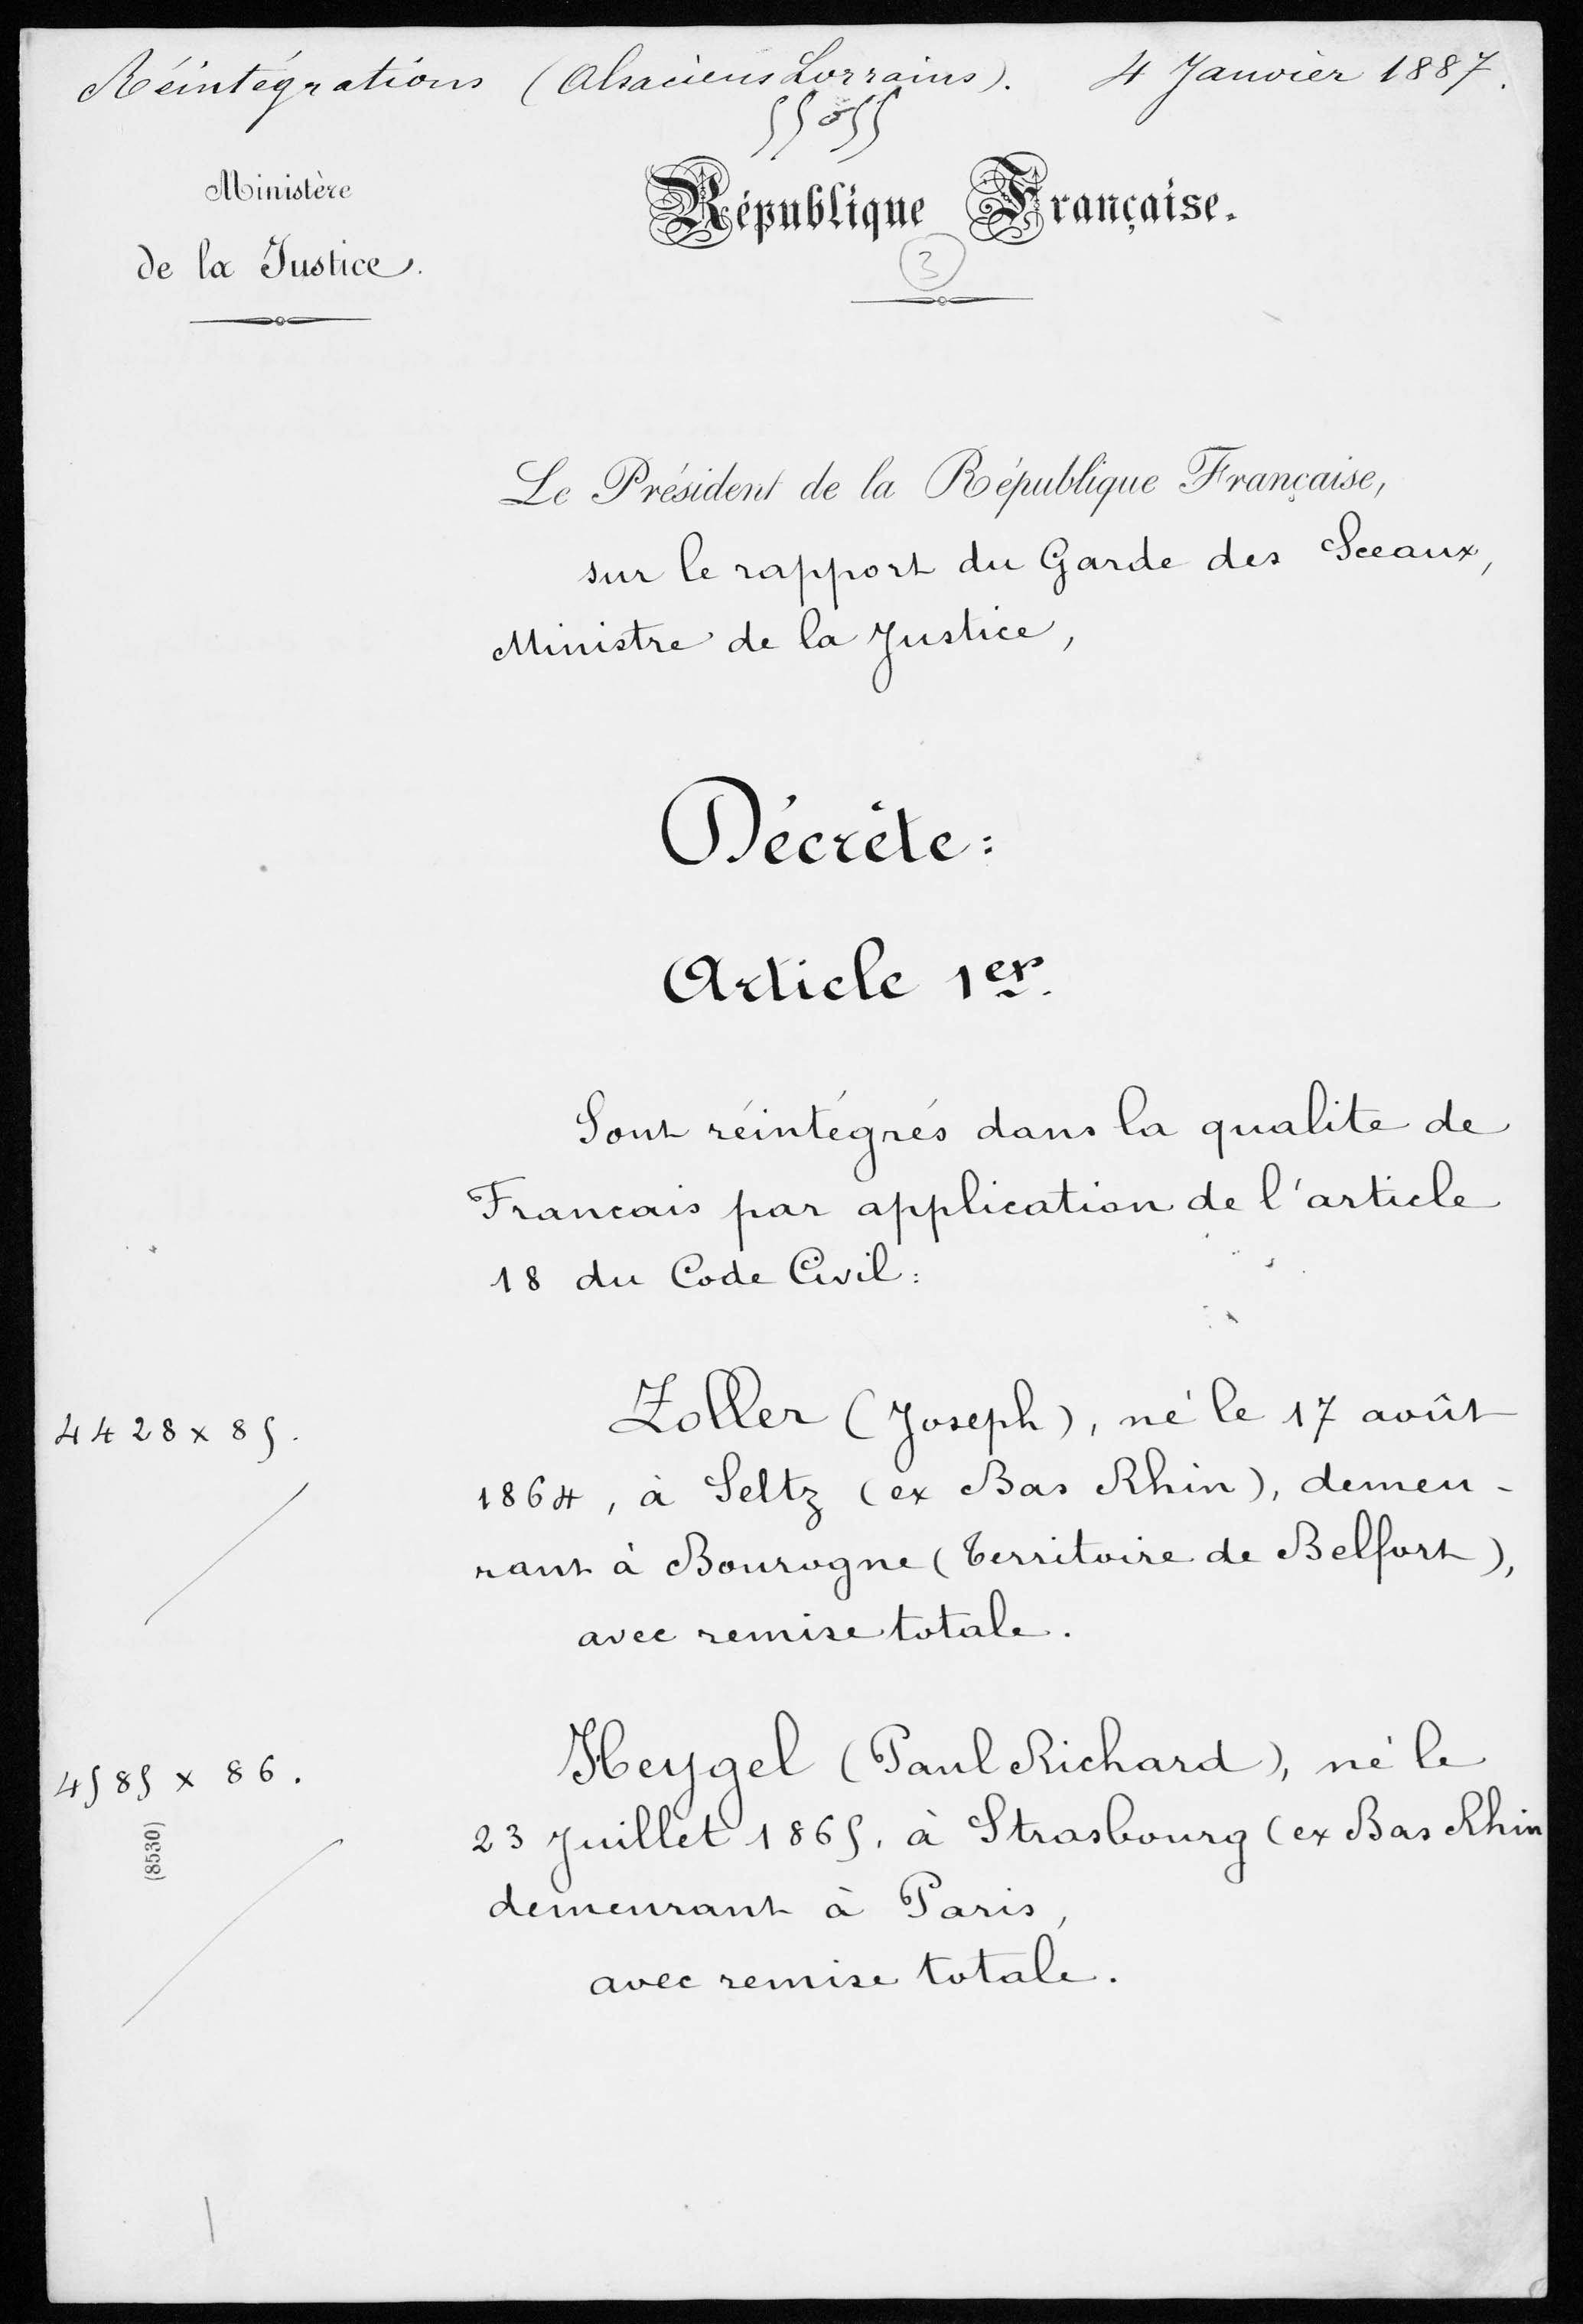 Réintégrations (Alsaciens Lorrains). 4 Janvier 1887.
Ministère
de la Justice.
République Française.
3
Le Président de la République Française,
sur le rapport du Garde des Sceaux,
Ministre de la Justice,
Décrète:
Article 1er.
Sont réintégrés dans la qualite de
Francais par application de l'article
18 du Code Civil:
4428 x 85.
Zoller (Joseph), né le 17 août
1864, à Seltz (ex Bas Rhin), demeu-
rant à Bourogne (Territoire de Belfort),
avec remise totale.
4585 x 86.
(8530)
Heygel (Paul Richard), né le
23 Juillet 1865, à Strasbourg (ex Bas Rhin
demeurant à Paris,
avec remise totale.